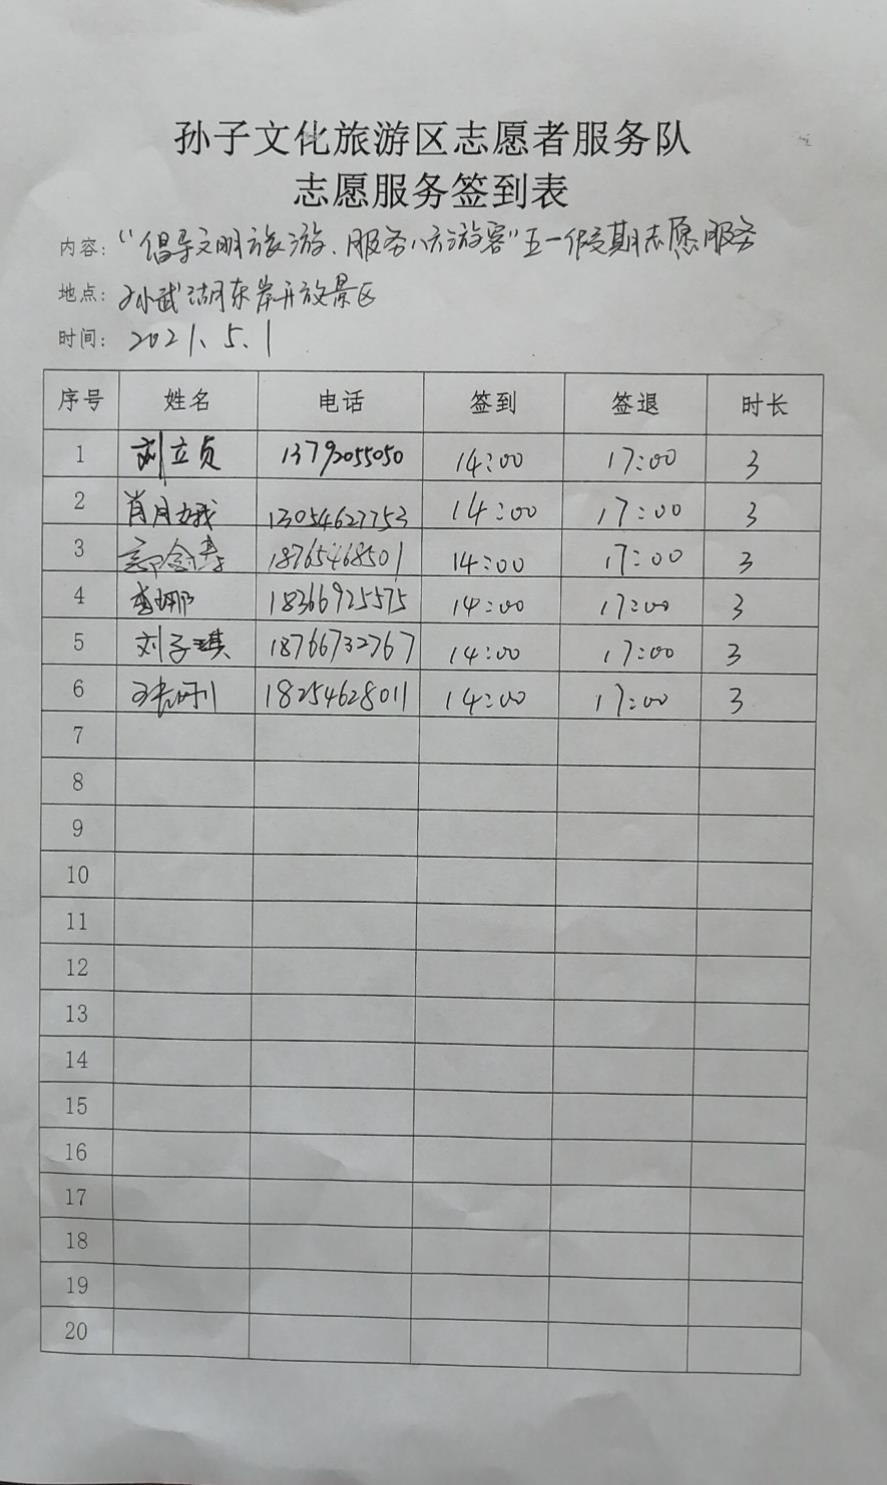 孙子文化旅游区志愿者服务队
志愿服务签到表
内容：“倡导文明旅游、服务八方游客”五一假期志愿服务
地点：孙武湖东岸开放景区
时间：2021.5.1
序号 姓名 电话 签到 签退 时长
1 刘立贞 13792055050 14:00 17:00 3
2 肖月娥 13054627753 14:00 17:00 3
3 18765468501 14:00 17:00 3
4 李娜 18366925575 14:00 17:00 3
5 刘子琪 18766732767 14:00 17:00 3
6 18254628011 14:00 17:00 3
7
8
9
10
11
12
13
14
15
16
17
18
19
20